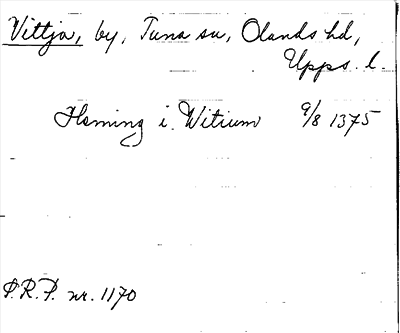 Vittja, by, Tuna sn, Olands hd,
Upps. l.
Heming i Witium 9/8 1375
P.R.P. nr. 1170